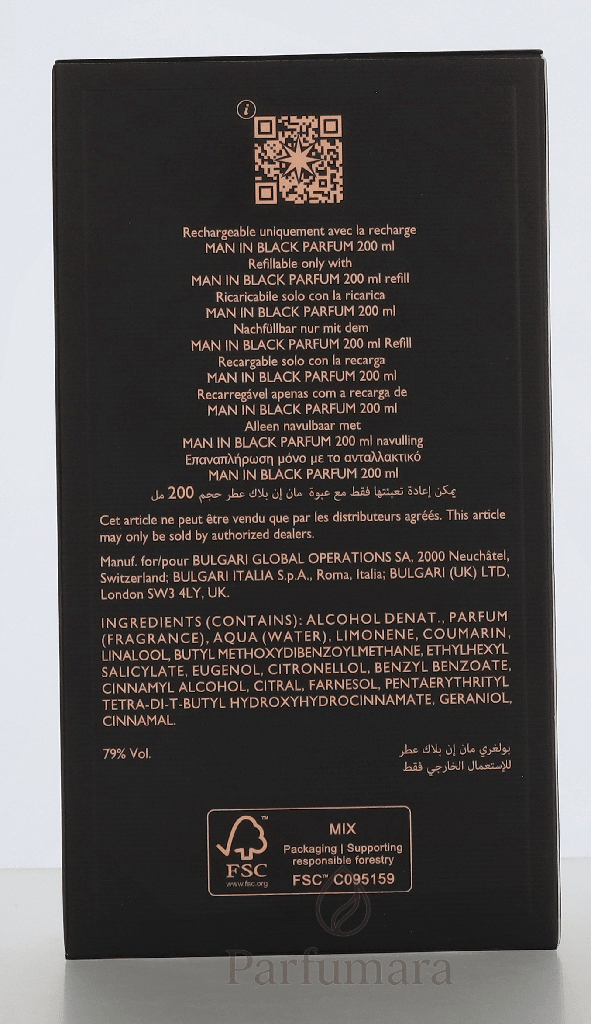 i
Rechargeable uniquement avec la recharge
MAN IN BLACK PARFUM 200 ml
Refillable only with
MAN IN BLACK PARFUM 200 ml refill
Ricaricabile solo con la ricarica
MAN IN BLACK PARFUM 200 ml
Nachfüllbar nur mit dem
MAN IN BLACK PARFUM 200 ml Refill
Recargable solo con la recarga
MAN IN BLACK PARFUM 200 ml
Recarregável apenas com a recarga de
MAN IN BLACK PARFUM 200 ml
Alleen navulbaar met
MAN IN BLACK PARFUM 200 ml navulling
Επαναπλήρωση μόνο με το ανταλλακτικό
MAN IN BLACK PARFUM 200 ml
يمكن إعادة تعبئتها فقط مع عبوة مان إن بلاك عطر حجم 200 مل
Cet article ne peut être vendu que par les distributeurs agréés. This article
may only be sold by authorized dealers.
Manuf. for/pour BULGARI GLOBAL OPERATIONS SA, 2000 Neuchâtel,
Switzerland; BULGARI ITALIA S.p.A., Roma, Italia; BULGARI (UK) LTD,
London SW3 4LY, UK.
INGREDIENTS (CONTAINS): ALCOHOL DENAT., PARFUM
(FRAGRANCE), AQUA (WATER), LIMONENE, COUMARIN,
LINALOOL, BUTYL METHOXYDIBENZOYLMETHANE, ETHYLHEXYL
SALICYLATE, EUGENOL, CITRONELLOL, BENZYL BENZOATE,
CINNAMYL ALCOHOL, CITRAL, FARNESOL, PENTAERYTHRITYL
TETRA-DI-T-BUTYL HYDROXYHYDROCINNAMATE, GERANIOL,
CINNAMAL.
79% Vol.
بولغري مان إن بلاك عطر
للإستعمال الخارجي فقط
FSC
www.fsc.org
MIX
Packaging | Supporting
responsible forestry
FSC™ C095159
Parfumara